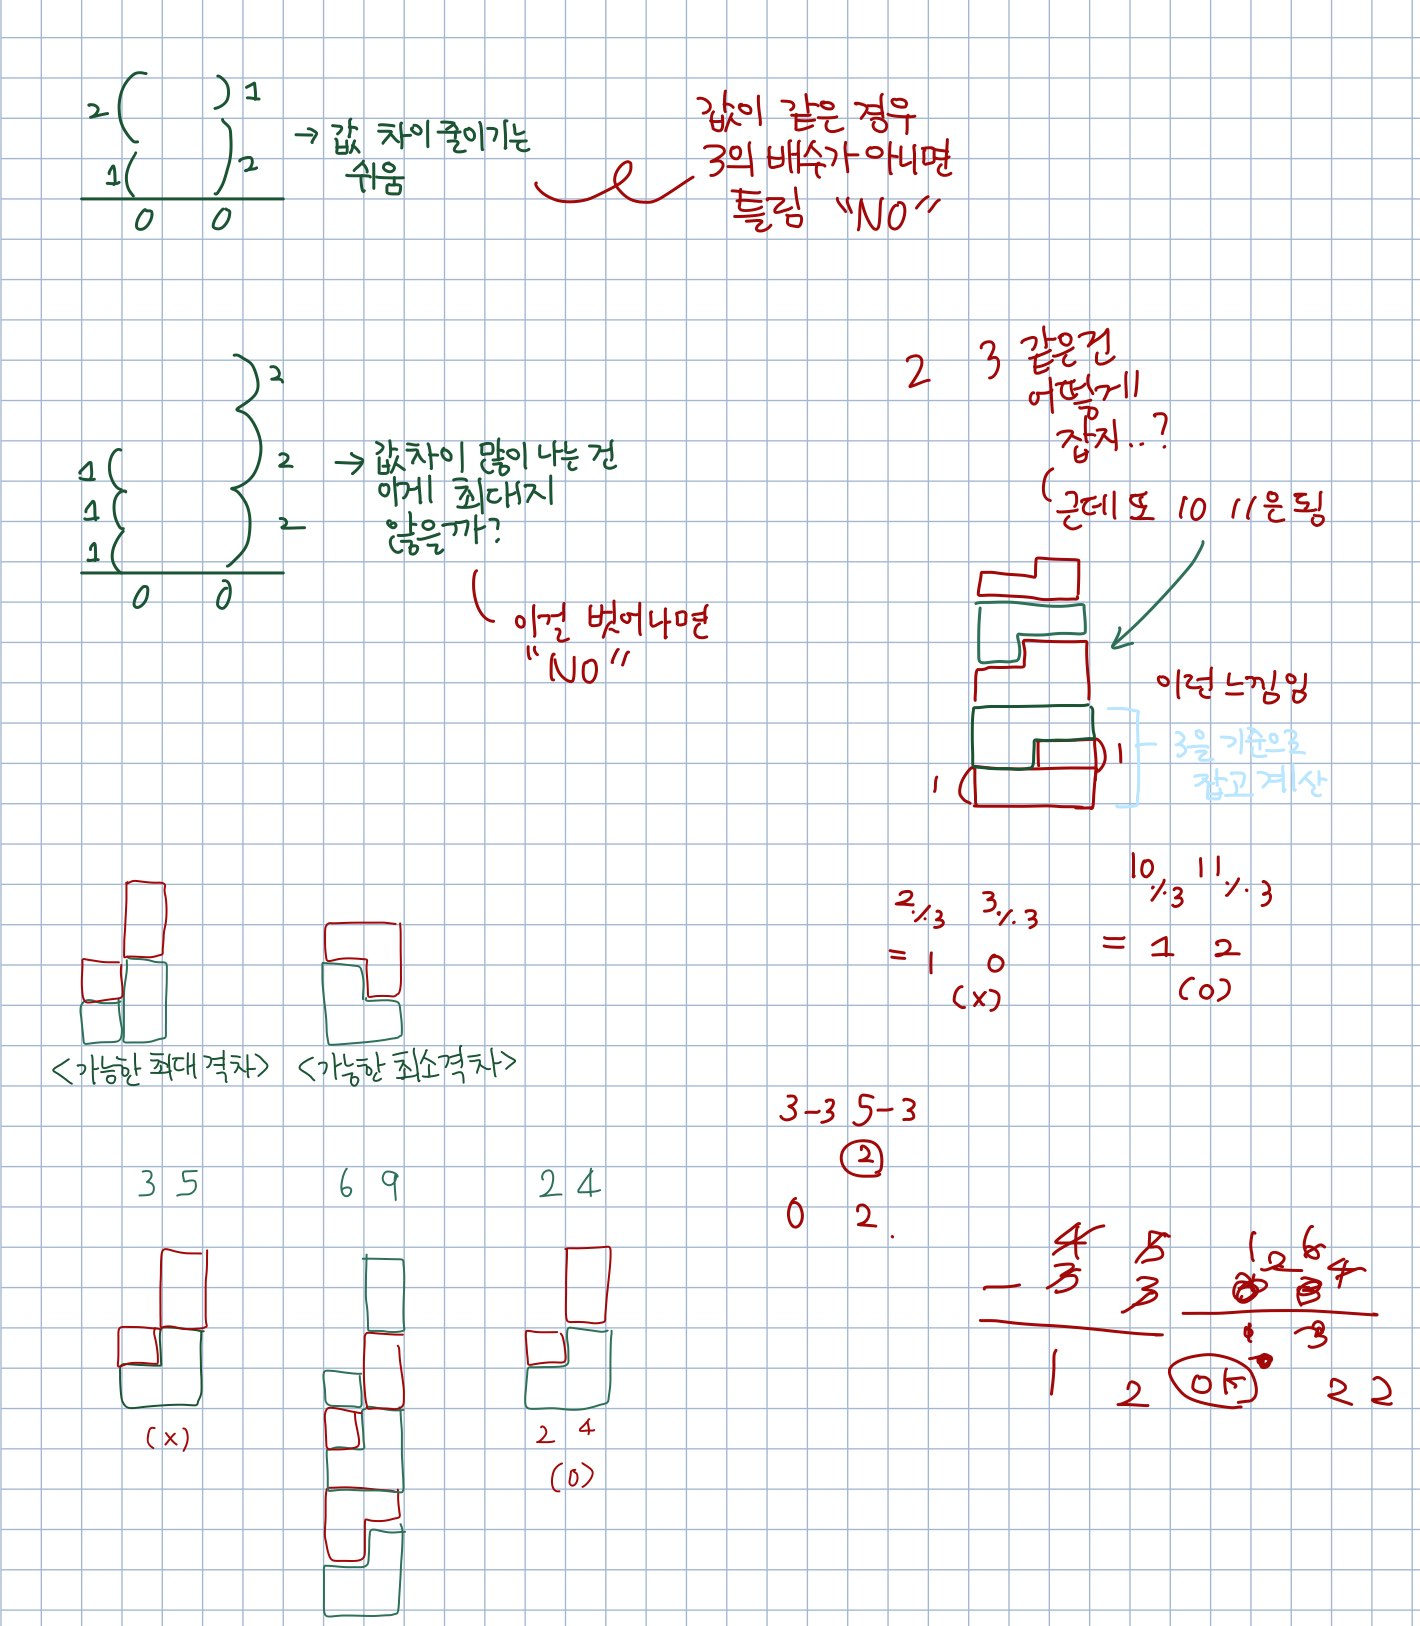 2 1
1 2
0 0
→ 값 차이 줄이기는
쉬움
값이 같은 경우
3의 배수가 아니면
틀림 “NO”
2
1 2
1 2
1
0 0
→ 값차이 많이 나는 건
이게 최대지
않을까?
이걸 벗어나면
“NO”
2 3 같은건
어떻게
잡지..?
근데 또 10 11은 됨
이런 느낌임
1
1
3을 기준으로
잡고 계산
2%3 3%3
= 1 0
(x)
10%3 11%3
= 1 2
(0)
<가능한 최대 격차>
<가능한 최소격차>
3 5
(x)
6 9
2 4
2 4
(0)
3-3 5-3
2
0 2.
4 5
- 3 3
1 2
OK
1 6
2 4
2 2